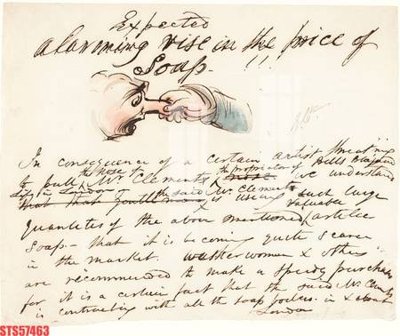 Expected
alarming rise in the price of
Soap. !!
In consequence of a certain artist threat'ning
to pull the Nose of Mr Clements the proprietor of Bells
Life in London we understand
that the said Mr Clements is using such large
quantities of the above mentioned valuable article
Soap - that it is becoming quite scarce
in the market. washerwomen & others
are recommended to make a speedy purchase
for it is a certain fact that the said Mr Clements
is contracting with all the soap boilers in & about
London
STS57463